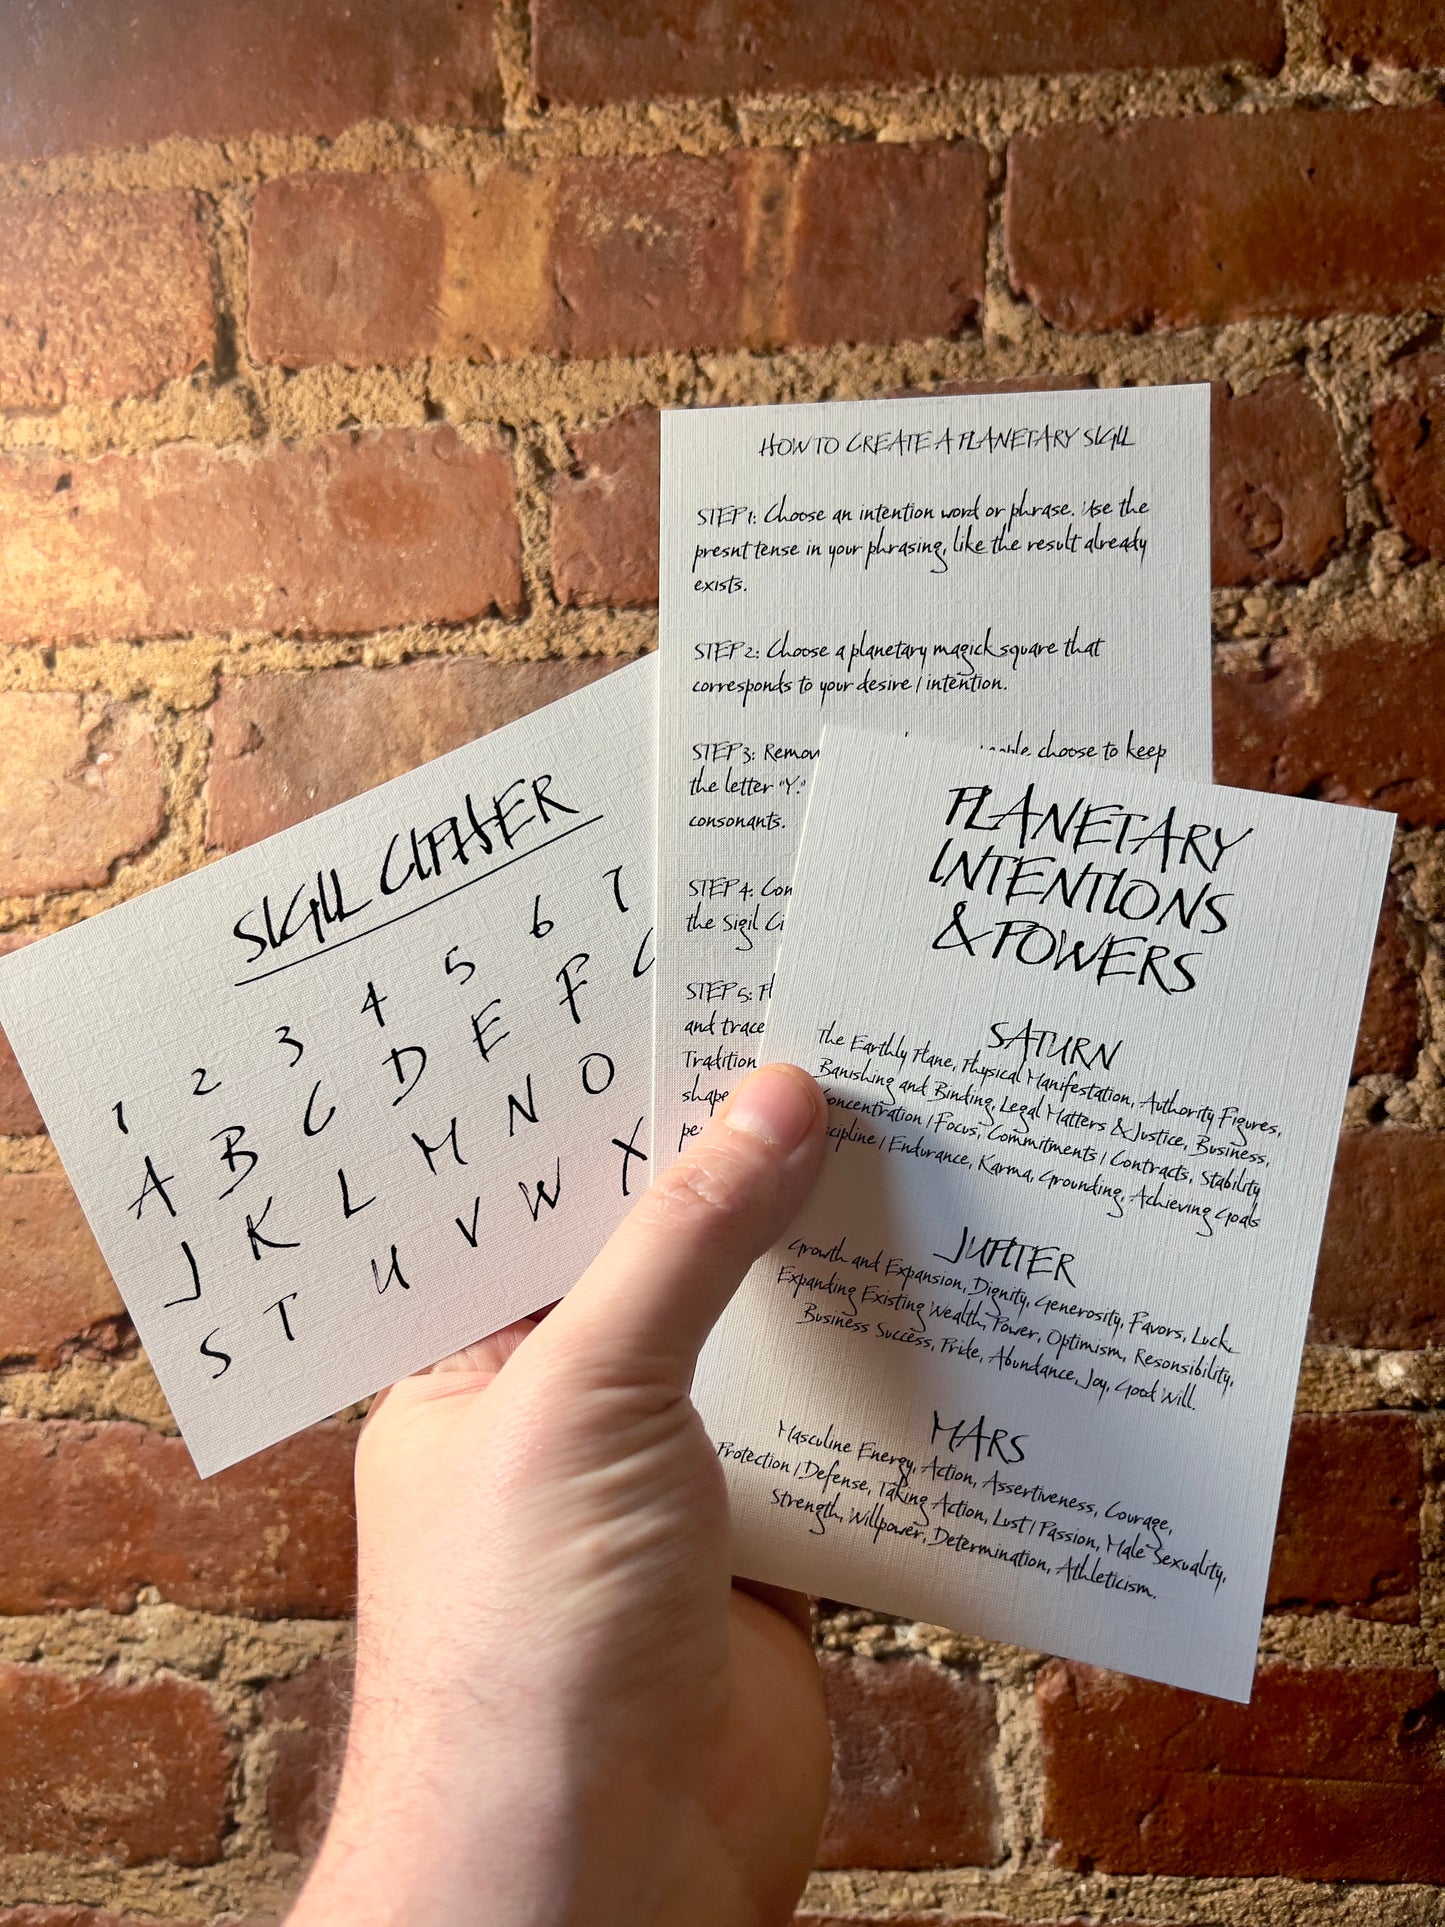 SIGIL CIPHER
1 2 3 4 5 6 7
A B C D E F
J K L M N O
S T U V W X
HOW TO CREATE A PLANETARY SIGIL
STEP 1: Choose an intention word or phrase. Use the
presnt tense in your phrasing, like the result already
exists.
STEP 2: Choose a planetary magick square that
corresponds to your desire / intention.
STEP 3: choose to keep
the letter "Y."
consonants.
STEP 4:
the Sigil
STEP 5:
and trace
PLANETARY
INTENTIONS
& POWERS
SATURN
The Earthly Plane, Physical Manifestation, Authority Figures,
Banishing and Binding, Legal Matters & Justice, Business,
/ Focus, Commitments / Contracts, Stability
/ Endurance, Karma, Grounding, Achieving Goals
JUPITER
Growth and Expansion, Dignity, Generosity, Favors, Luck,
Expanding Existing Wealth, Power, Optimism, Resonsibility,
Business Success, Pride, Abundance, Joy, Good Will.
MARS
Masculine Energy, Action, Assertiveness, Courage,
Protection / Defense, Taking Action, Lust / Passion, Male Sexuality,
Strength, Willpower, Determination, Athleticism.